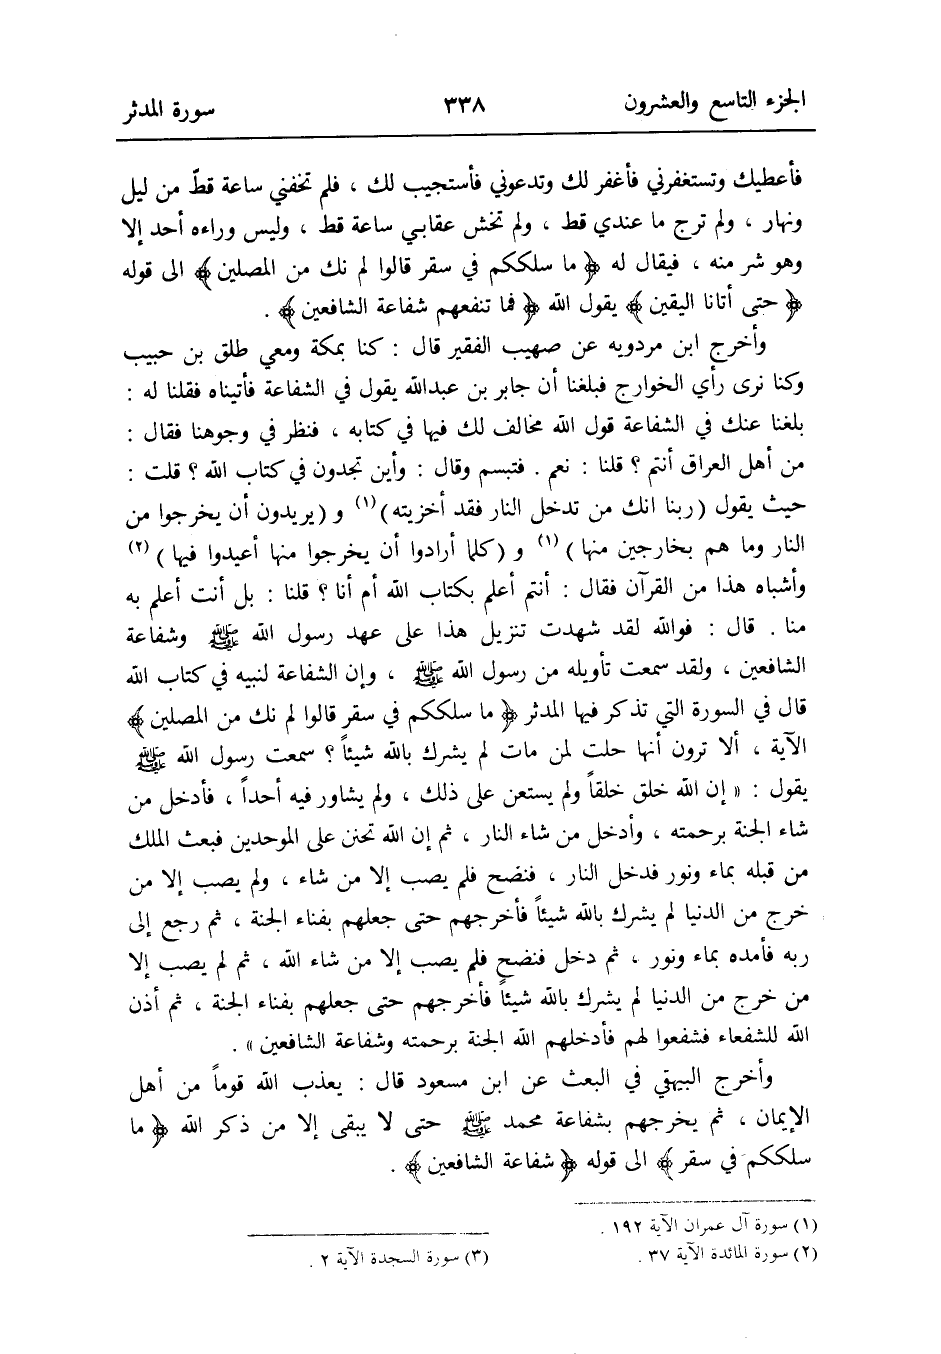 الجزء التاسع والعشرون ٣٣٨ سورة المدثر
فأعطيك وتستغفرني فأغفر لك وتدعوني فأستجيب لك ، فلم تخفني ساعة قطّ من ليل
ونهار ، ولم ترج ما عندي قط ، ولم تخش عقابي ساعة قط ، وليس وراءه أحد إلا
وهو شر منه ، فيقال له ﴿ ما سلككم في سقر قالوا لم نك من المصلين ﴾ الى قوله
﴿ حتى أتانا اليقين ﴾ يقول الله ﴿ فما تنفعهم شفاعة الشافعين ﴾ .
وأخرج ابن مردويه عن صهيب الفقير قال : كنا بمكة ومعي طلق بن حبيب
وكنا نرى رأي الخوارج فبلغنا أن جابر بن عبدالله يقول في الشفاعة فأتيناه فقلنا له :
بلغنا عنك في الشفاعة قول الله مخالف لك فيها في كتابه ، فنظر في وجوهنا فقال :
من أهل العراق أنتم ؟ قلنا : نعم . فتبسم وقال : وأين تجدون في كتاب الله ؟ قلت :
حيث يقول (ربنا انك من تدخل النار فقد أخزيته) (١) و (يريدون أن يخرجوا من
النار وما هم بخارجين منها) (١) و (كلما أرادوا أن يخرجوا منها أعيدوا فيها) (٢)
وأشباه هذا من القرآن فقال : أنتم أعلم بكتاب الله أم أنا ؟ قلنا : بل أنت أعلم به
منا . قال : فوالله لقد شهدت تنزيل هذا على عهد رسول الله ﷺ وشفاعة
الشافعين ، ولقد سمعت تأويله من رسول الله ﷺ ، وإن الشفاعة لنبيه في كتاب الله
قال في السورة التي تذكر فيها المدثر ﴿ ما سلككم في سقر قالوا لم نك من المصلين ﴾
الآية ، ألا ترون أنها حلت لمن مات لم يشرك بالله شيئاً ؟ سمعت رسول الله ﷺ
يقول : « إن الله خلق خلقاً ولم يستعن على ذلك ، ولم يشاور فيه أحداً ، فأدخل من
شاء الجنة برحمته ، وأدخل من شاء النار ، ثم إن الله تحنن على الموحدين فبعث الملك
من قبله بماء ونور فدخل النار ، فنضح فلم يصب إلا من شاء ، ولم يصب إلا من
خرج من الدنيا لم يشرك بالله شيئاً فأخرجهم حتى جعلهم بفناء الجنة ، ثم رجع إلى
ربه فأمده بماء ونور ، ثم دخل فنضح فلم يصب إلا من شاء الله ، ثم لم يصب إلا
من خرج من الدنيا لم يشرك بالله شيئاً فأخرجهم حتى جعلهم بفناء الجنة ، ثم أذن
الله للشفعاء فشفعوا لهم فأدخلهم الله الجنة برحمته وشفاعة الشافعين » .
وأخرج البيهقي في البعث عن ابن مسعود قال : يعذب الله قوماً من أهل
الإيمان ، ثم يخرجهم بشفاعة محمد ﷺ حتى لا يبقى إلا من ذكر الله ﴿ ما
سلككم في سقر ﴾ الى قوله ﴿ شفاعة الشافعين ﴾ .
(١) سورة آل عمران الآية ١٩٢ .
(٢) سورة المائدة الآية ٣٧ .
(٣) سورة السجدة الآية ٢ .